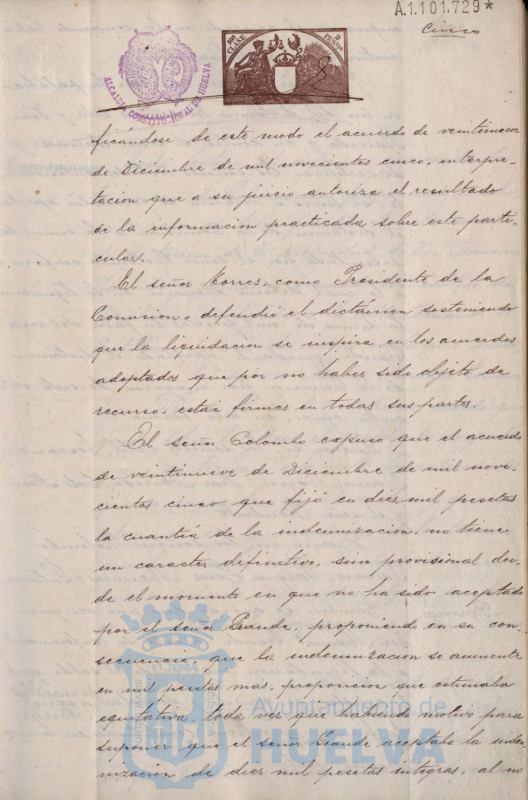 A.1.101.729*
Cinco
10ª CLASE
2 PESETAS
ALCALDIA CONSTITUCIONAL DE HUELVA
ficándose de este modo el acuerdo de veintinueve
de Diciembre de mil novecientos cinco, interpre-
tacion que a su juicio autoriza el resultado
de la informacion practicada sobre este parti-
cular.
El señor Torres, como Presidente de la
Comision, defendió el dictámen sosteniendo
que la liquidacion se inspira en los acuerdos
adoptados que por no haber sido objeto de
recurso, están firmes en todas sus partes.
El señor Colombo expuso que el acuerdo
de veintinueve de Diciembre de mil nove-
cientos cinco que fijó en diez mil pesetas
la cuantía de la indemnizacion, no tiene
un caracter definitivo, sino provisional des-
de el momento en que no ha sido aceptado
por el señor Grande, proponiendo en su con-
secuencia, que la indemnizacion se aumente
en mil pesetas más, proposicion que estimaba
equitativa, toda vez que habiendo motivo para
suponer que el señor Grande aceptaba la indem-
nizacion de diez mil pesetas íntegras, al no
Ayuntamiento de
HUELVA